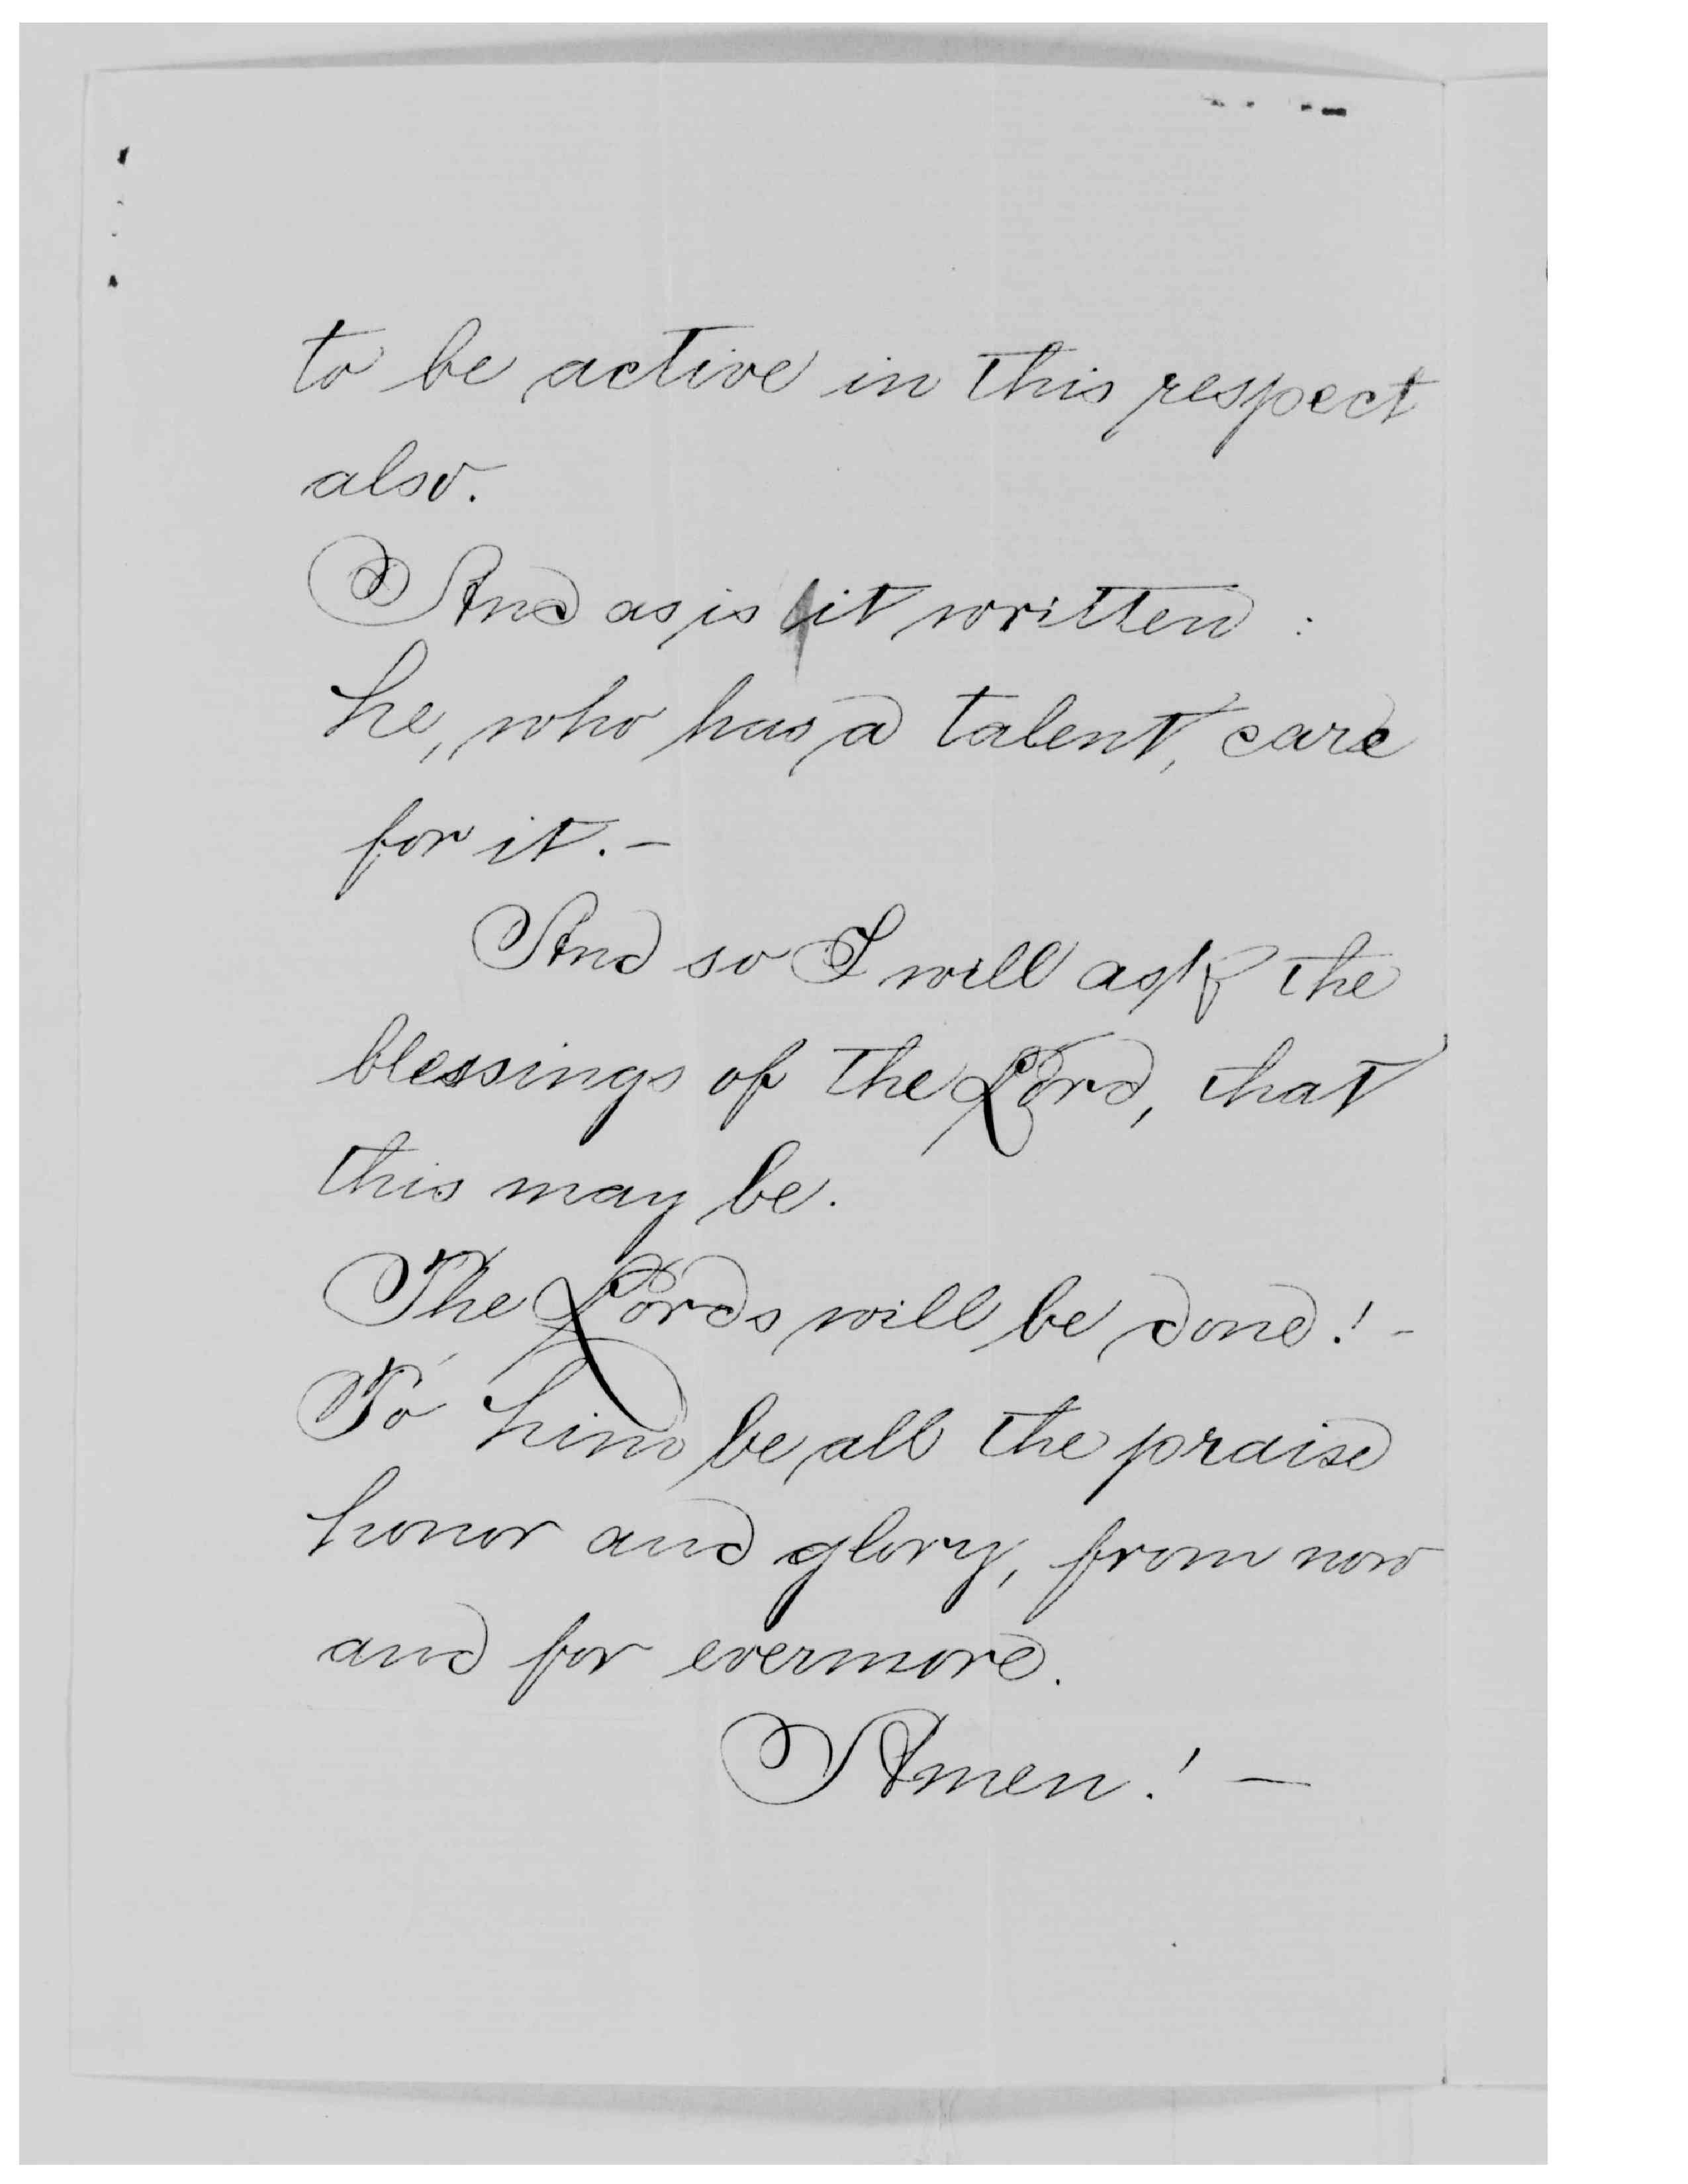 to be active in this respect
also.
And as is it written :
he, who has a talent, care
for it. -
And so I will ask the
blessings of the Lord, that
this may be.
The Lords will be done! -
To him be all the praise
honor and glory, from now
and for evermore.
Amen! —